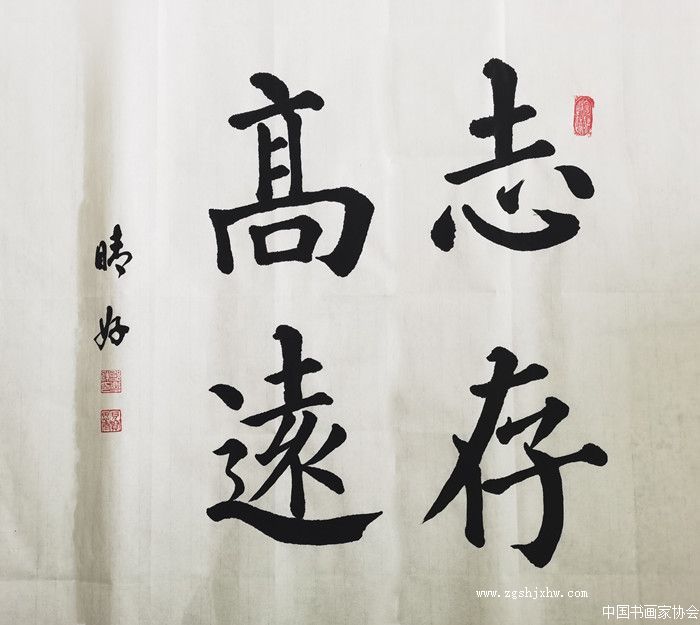 志存
髙遠
晴好
www.zgshjxhw.com
中国书画家协会